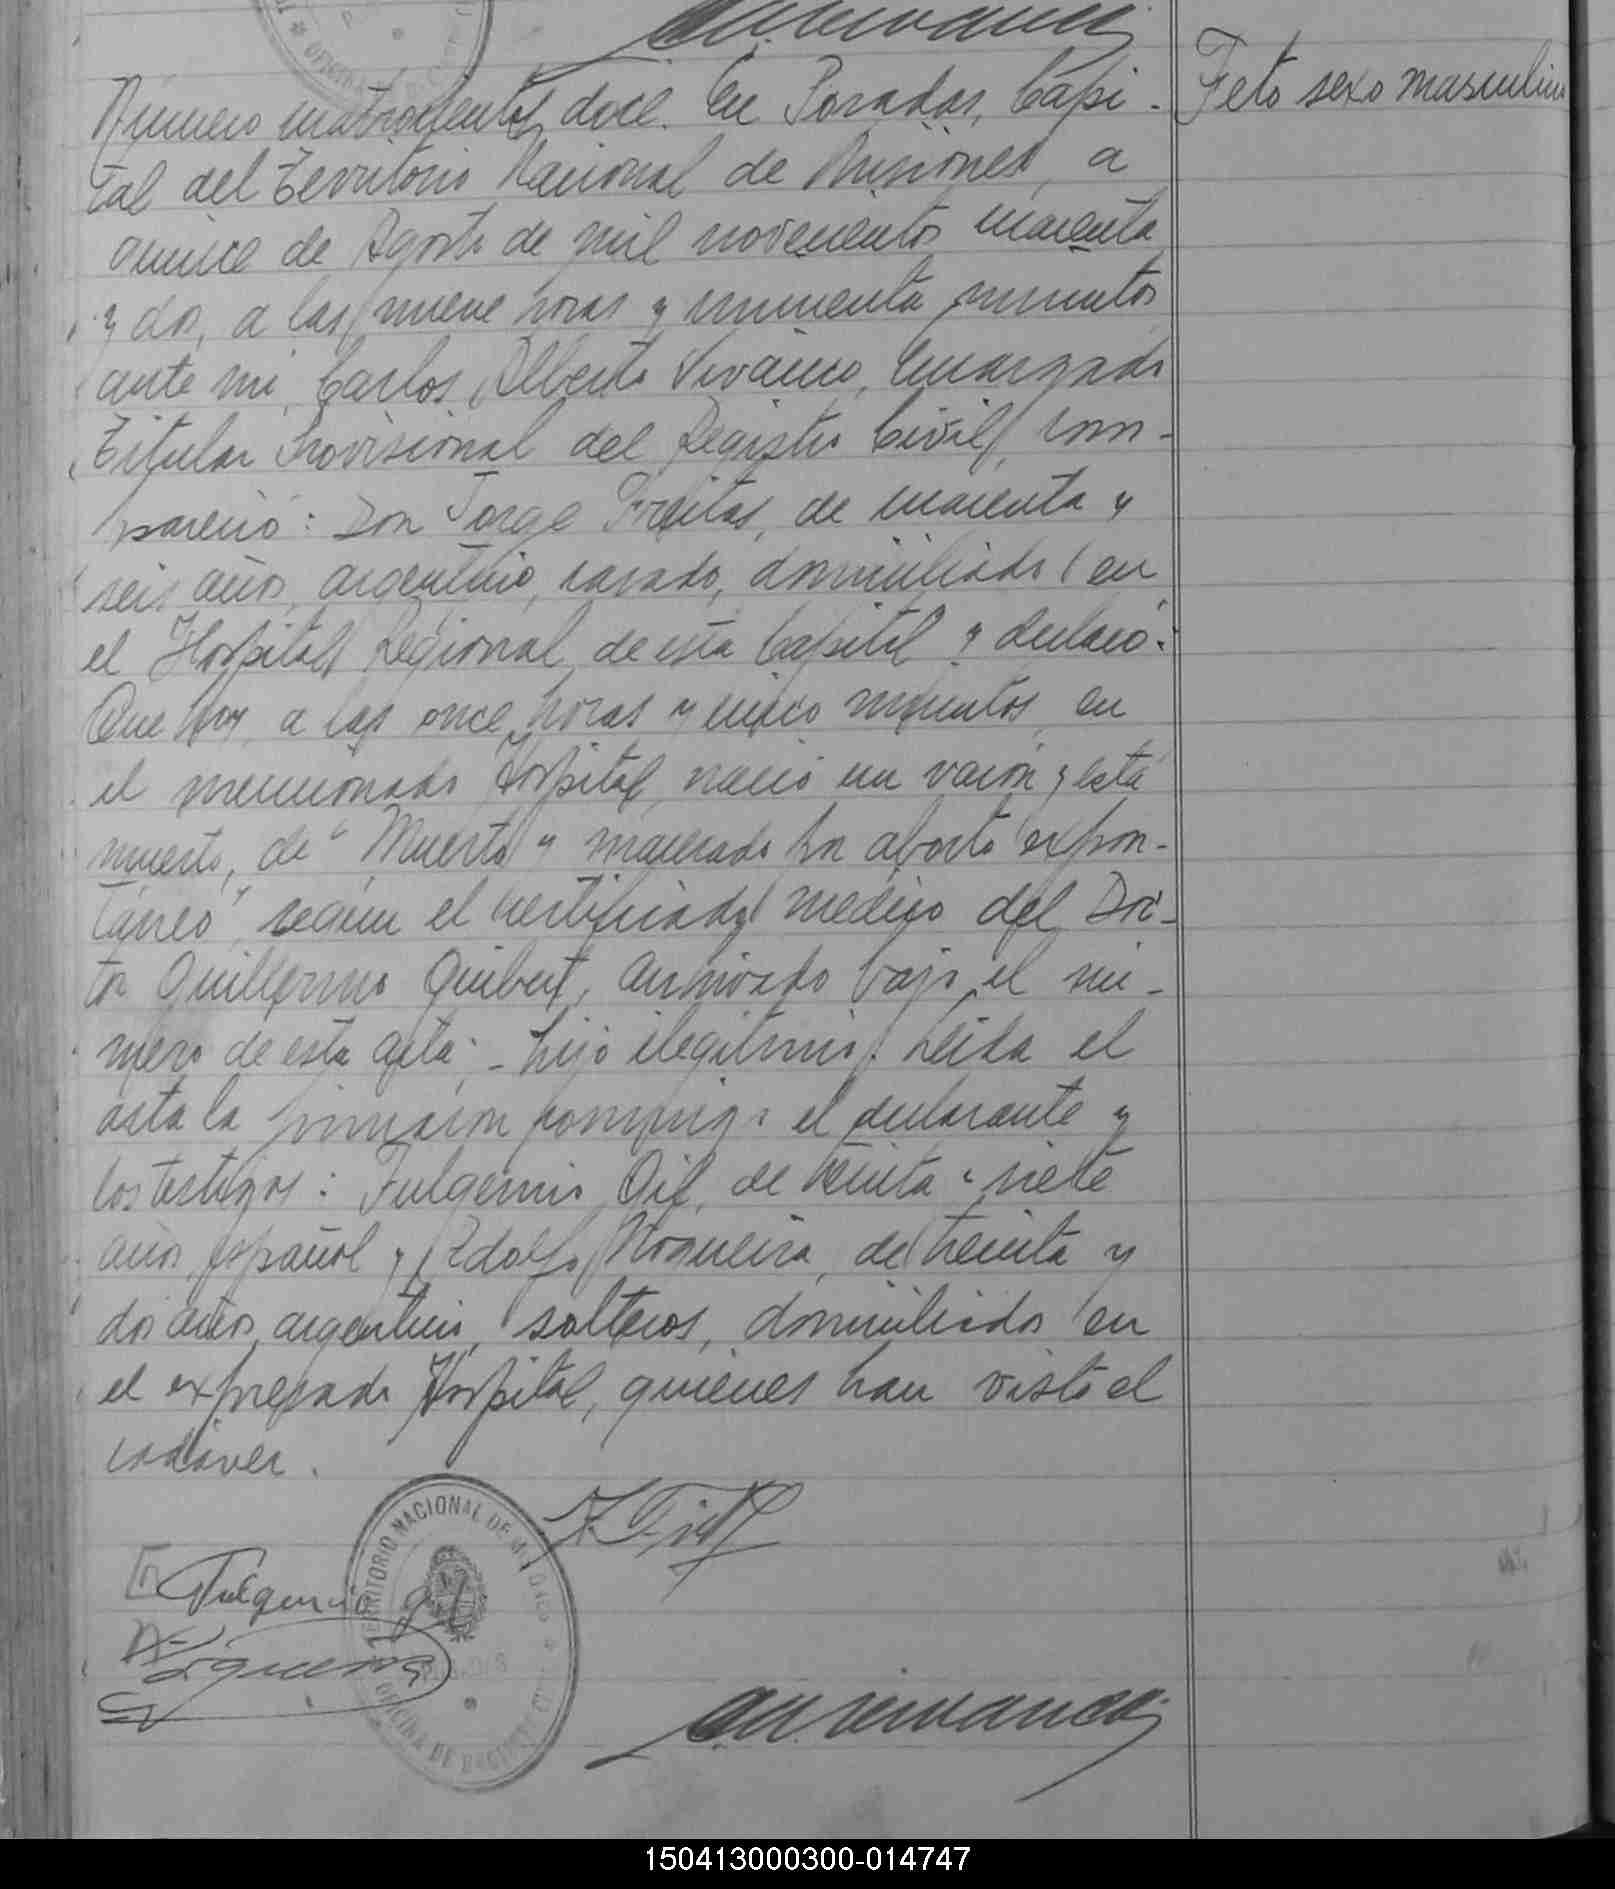 Feto sexo masculino
Número cuatrocientos doce. En Posadas, Capi-
tal del Territorio Nacional de Misiones, a
quince de Agosto de mil novecientos cuarenta
y dos, a las nueve horas y cincuenta minutos
ante mi, Carlos Alberto Vivanco, Encargado
Titular Provisional del Registro Civil, com-
pareció: Don Jorge Freitas, de cuarenta y
seis años, argentino, casado, domiciliado en
el Hospital Regional de esta Capital y declaró:
Que hoy, a las once horas y cinco minutos, en
el mencionado Hospital, nació un varón y está
muerto, de "Muerto y macerado por aborto expon-
táneo", según el certificado médico del Doc-
tor Guillermo Guibert, archivado bajo el nú-
mero de esta acta; - hijo ilegítimo. Leída el
acta la firmaron conmigo el declarante y
los testigos: Fulgencio Gil, de treinta y siete
años, español y Adolfo Nogueira, de treinta y
dos años, argentino, solteros, domiciliados en
el expresado Hospital, quienes han visto el
cadáver.
TERRITORIO NACIONAL DE MISIONES
Fulgencio Gil
Nogueira
OFICINA DE REGISTRO CIVIL